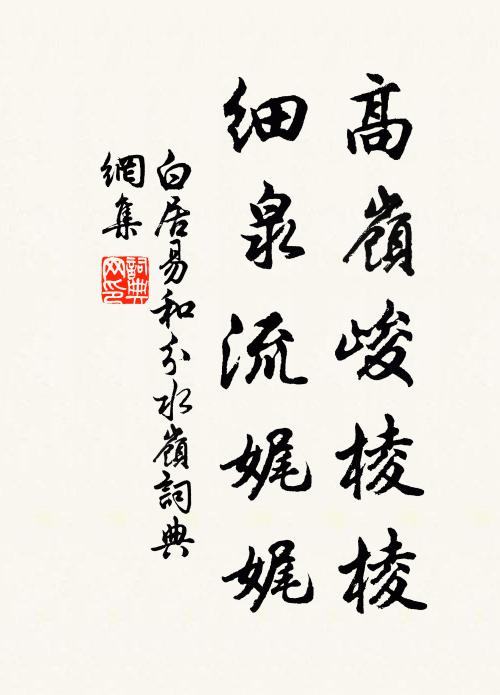 高嶺峻棱棱
細泉流娓娓
白居易和分水嶺詞典
網集
詞典
网印